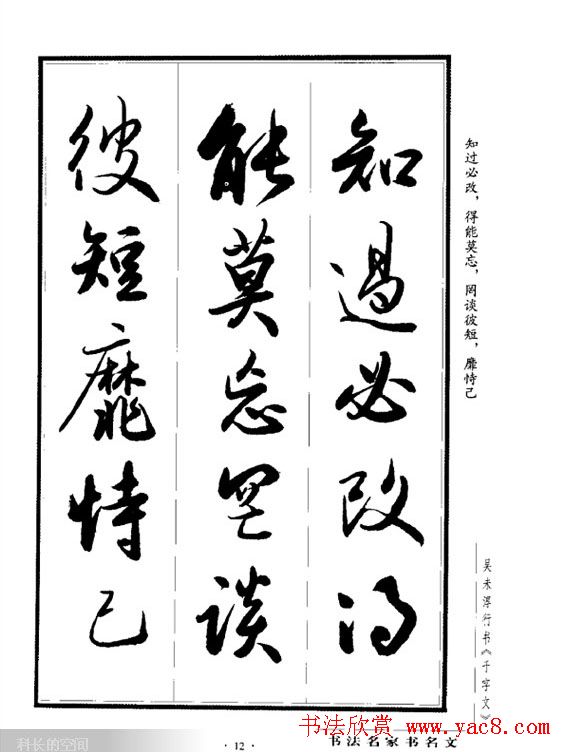 知過必改得
能莫忘罔談
彼短靡恃己
知过必改，得能莫忘，罔谈彼短，靡恃己
吴未淳行书《千字文》
· 12 ·
书法名家书名文
书法欣赏 www.yac8.com
科长的空间